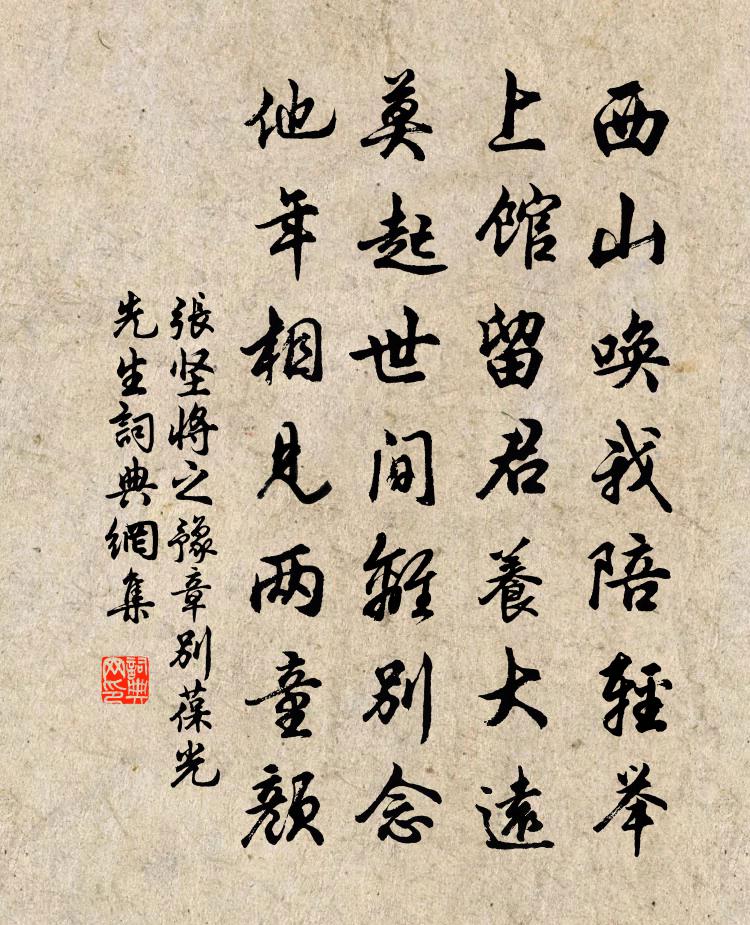 西山唤我陪輕举
上館留君養大遠
莫起世间離别念
他年相見两童顔
張坚将之豫章别葆光
先生詞典網集
詞典网印